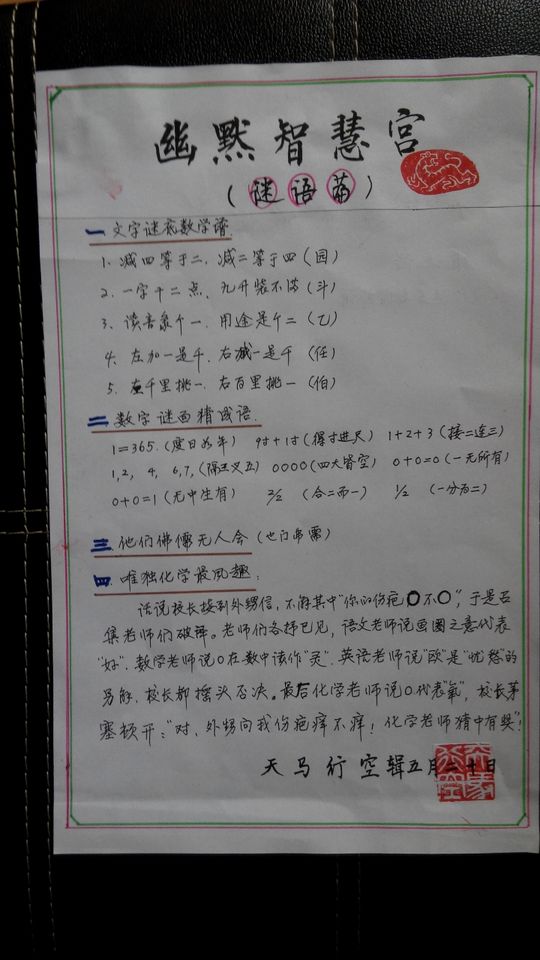 幽默智慧宫
（谜语篇）
一 文字谜底数学谱
1、减四等于二、减二等于四（园）
2、一字十二点、九升装不满（斗）
3、读音象个一、用途是个二（乙）
4、左加一是千、右减一是千（任）
5、左千里挑一、右百里挑一（伯）
二 数字谜面猜成语.
1=365.（度日如年） 9寸+1寸（得寸进尺） 1+2+3（接二连三）
1,2, 4, 6,7,（隔三叉五） 0000（四大皆空） 0+0=0（一无所有）
0+0=1（无中生有） 2/2 （合二而一） 1/2 （一分为二）
三 他们佛儒无人会（也门弗需）
四 唯独化学最风趣：
话说校长接到外甥信，不解其中"你的伤疤O不O"，于是召
集老师们破译。老师们各抒己见，语文老师说画圈之意代表
"好"。数学老师说O在数中该作"灵"。英语老师说"欧"是"忧愁的
另解，校长都摇头否决。最后化学老师说O代表"氧"，校长茅
塞顿开："对、外甥问我伤疤痒不痒！化学老师猜中有奖"！
天马行空辑五月二十日
天马行空